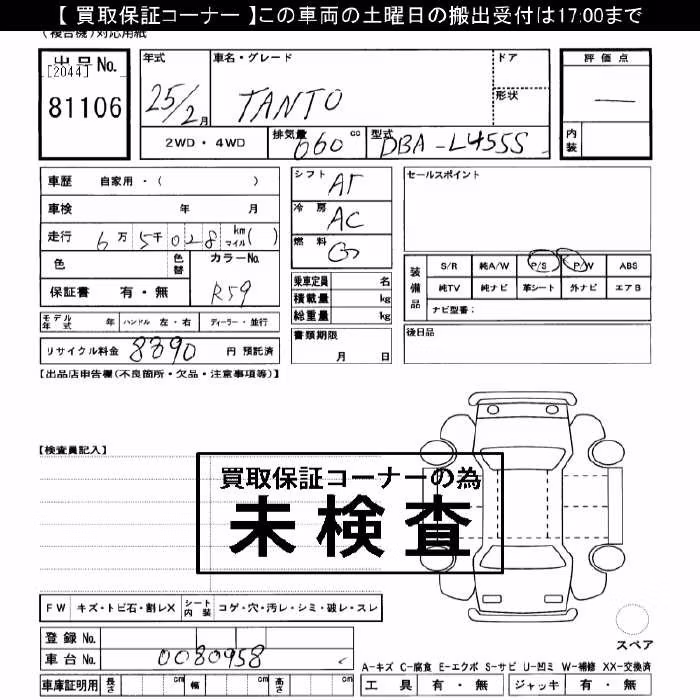 【 買取保証コーナー 】この車両の土曜日の搬出受付は17:00まで
(複合機)対応用紙
出品No.
[2044]
81106
年式
25/2月
車名・グレード
TANTO
ドア
形状
評価点
—
内装
2WD・4WD
排気量
660 cc
型式
DBA-L455S
車歴 自家用・( )
車検 年 月
走行 6万5千028 km マイル( )
色
色替
カラーNo.
R59
保証書 有・無
シフト AT
冷房 AC
燃料 G
乗車定員 名
積載量 kg
総重量 kg
書類期限
月 日
セールスポイント
装備品
S/R 純A/W P/S P/W ABS
純TV 純ナビ 革シート 外ナビ エアB
ナビ型番:
後日品
モデル年式 年 ハンドル 左・右 ディーラー・並行
リサイクル料金 8890 円 預託済
【出品店申告欄(不良箇所・欠品・注意事項等)】
【検査員記入】
買取保証コーナーの為
未検査
FW キズ・トビ石・割レX シート内装 コゲ・穴・汚レ・シミ・破レ・スレ
登録 No.
車台 No. 0080958
車庫証明用 長さ cm 幅 cm 高さ cm
スペア
A-キズ C-腐食 E-エクボ S-サビ U-凹ミ W-補修 XX-交換済
工具 有・無 ジャッキ 有・無